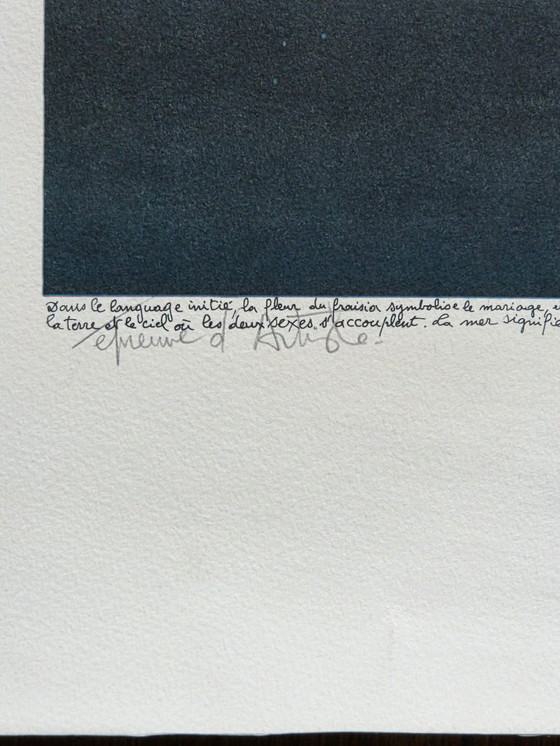 Dans le language initié, la fleur du fraisier symbolise le mariage,
la terre et le ciel où les deux sexes s'accouplent. La mer signifi
épreuve d'Artiste.